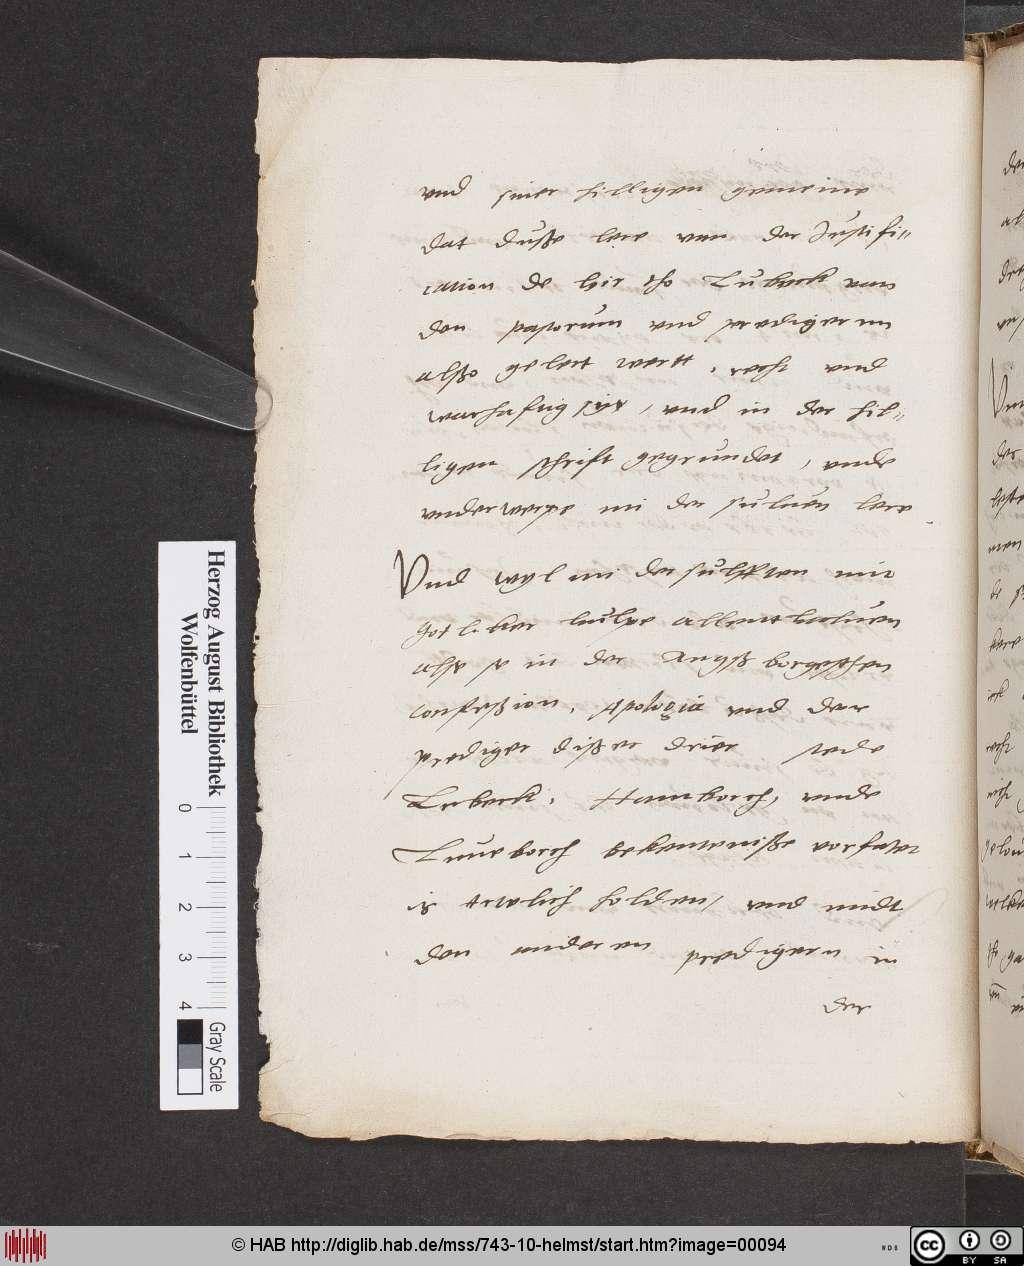 vnd siner hilligen gemeine
dat dusße lere van der Justifi=
cation de hir tho Lubeck van
den pastorum vnd predigerenn
alßo gelert wertt, recht vnd
warhaftig sye, vnd in der hil=
ligen schrift gegrundet, vnde
vnderwerpe mi der suluen lere
Vnd wyl mi der sulfften mit
gotliker hulpe allenthaluen
alse se in der Angßborgeschen
confeßion, Apologia vnd der
prediger dißer drier stede
Lubeck, Hamborch, vnde
Luneborch bekenteniße vorfatet
is trwlich holden, vnd midt
den anderen predigern in
der
Herzog August Bibliothek
Wolfenbüttel
0 1 2 3 4
Gray Scale
© HAB http://diglib.hab.de/mss/743-10-helmst/start.htm?image=00094
cc BY SA